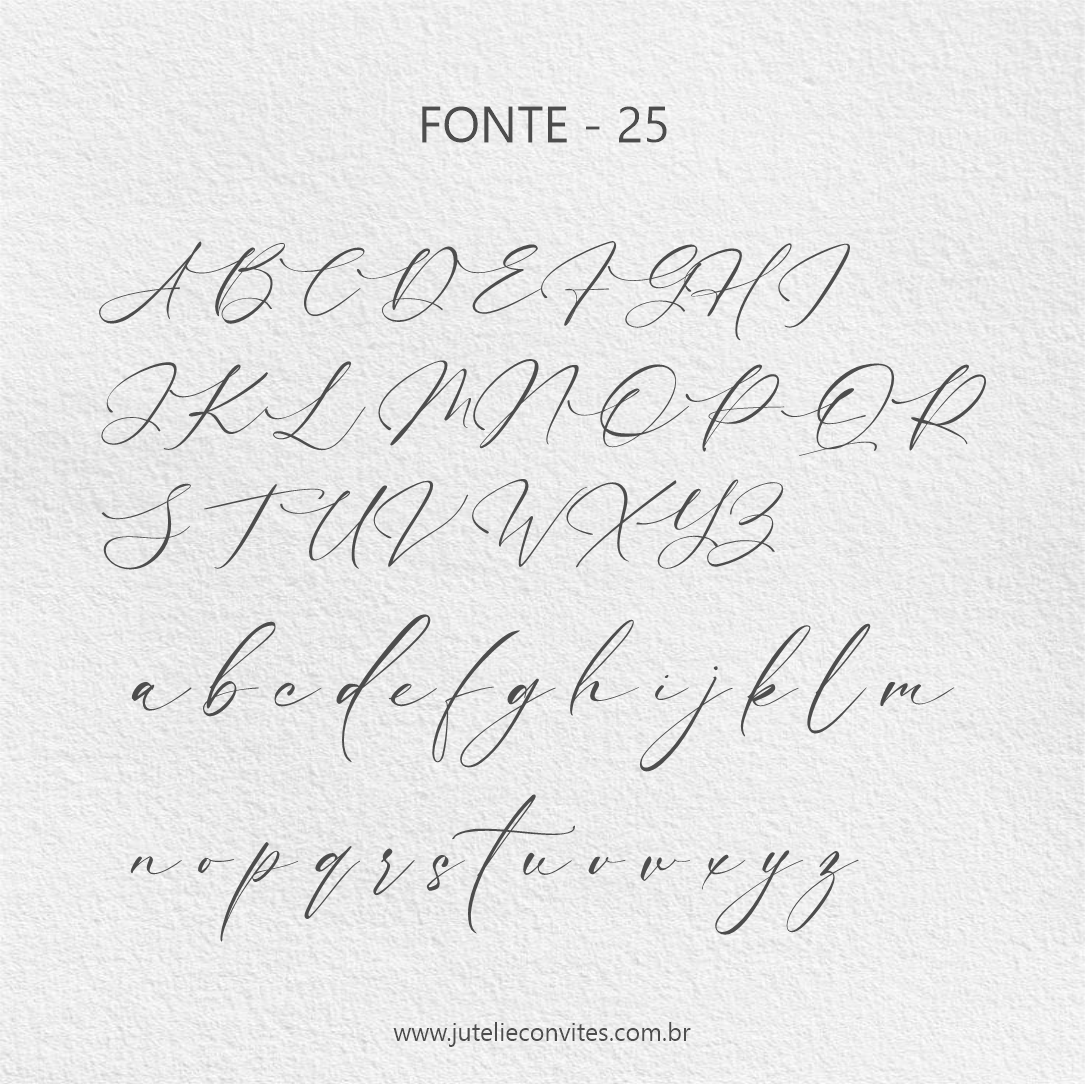 FONTE - 25
A B C D E F G H I
J K L M N O P Q R
S T U V W X Y Z
a b c d e f g h i j k l m
n o p q r s t u v w x y z
www.jutelieconvites.com.br